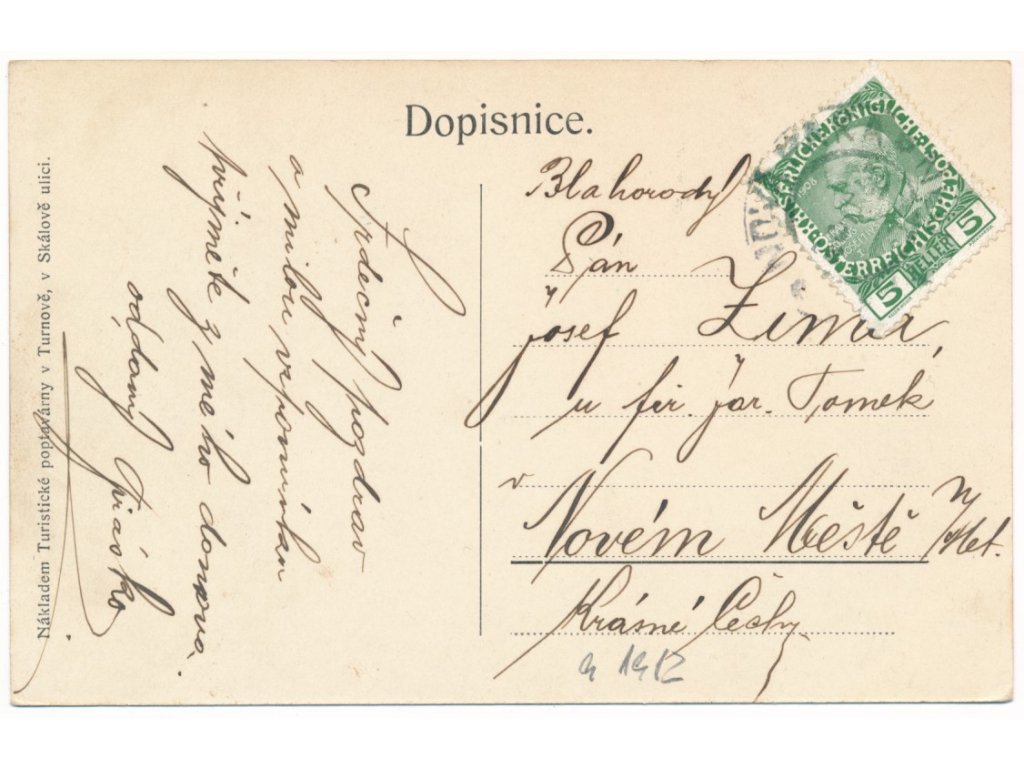 Dopisnice.
Nákladem Turistické poptavárny v Turnově, v Skálově ulici.
Srdečný pozdrav
a milou vzpomínkou
přijměte z mého domova.
oddaný
Blahorodý
Pán
Josef Zimar,
u fir. Jar. Tomek
v
Novém Městě n/Met.
Krásné Čechy.
1912
KAISERLICHE KÖNIGLICHE
ÖSTERREICHISCHE POST
1908
5 HELLER 5